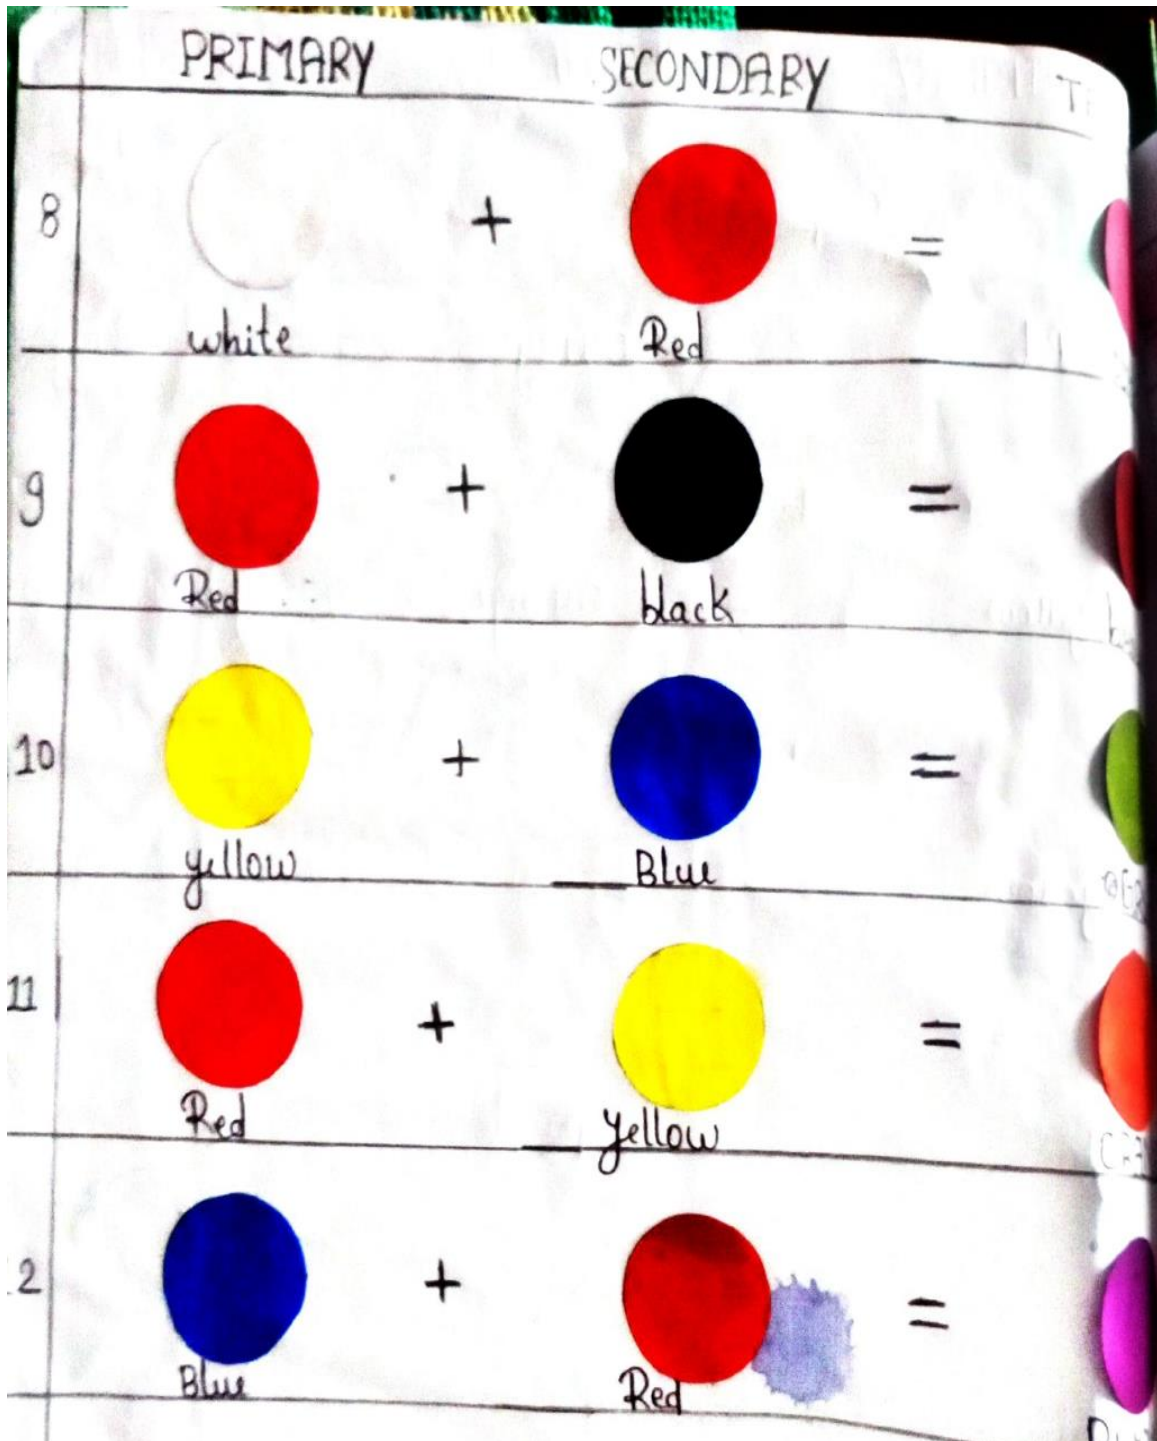 PRIMARY SECONDARY
8 + =
white Red
9 + =
Red black
10 + =
yellow Blue
11 + =
Red Yellow
2 + =
Blue Red